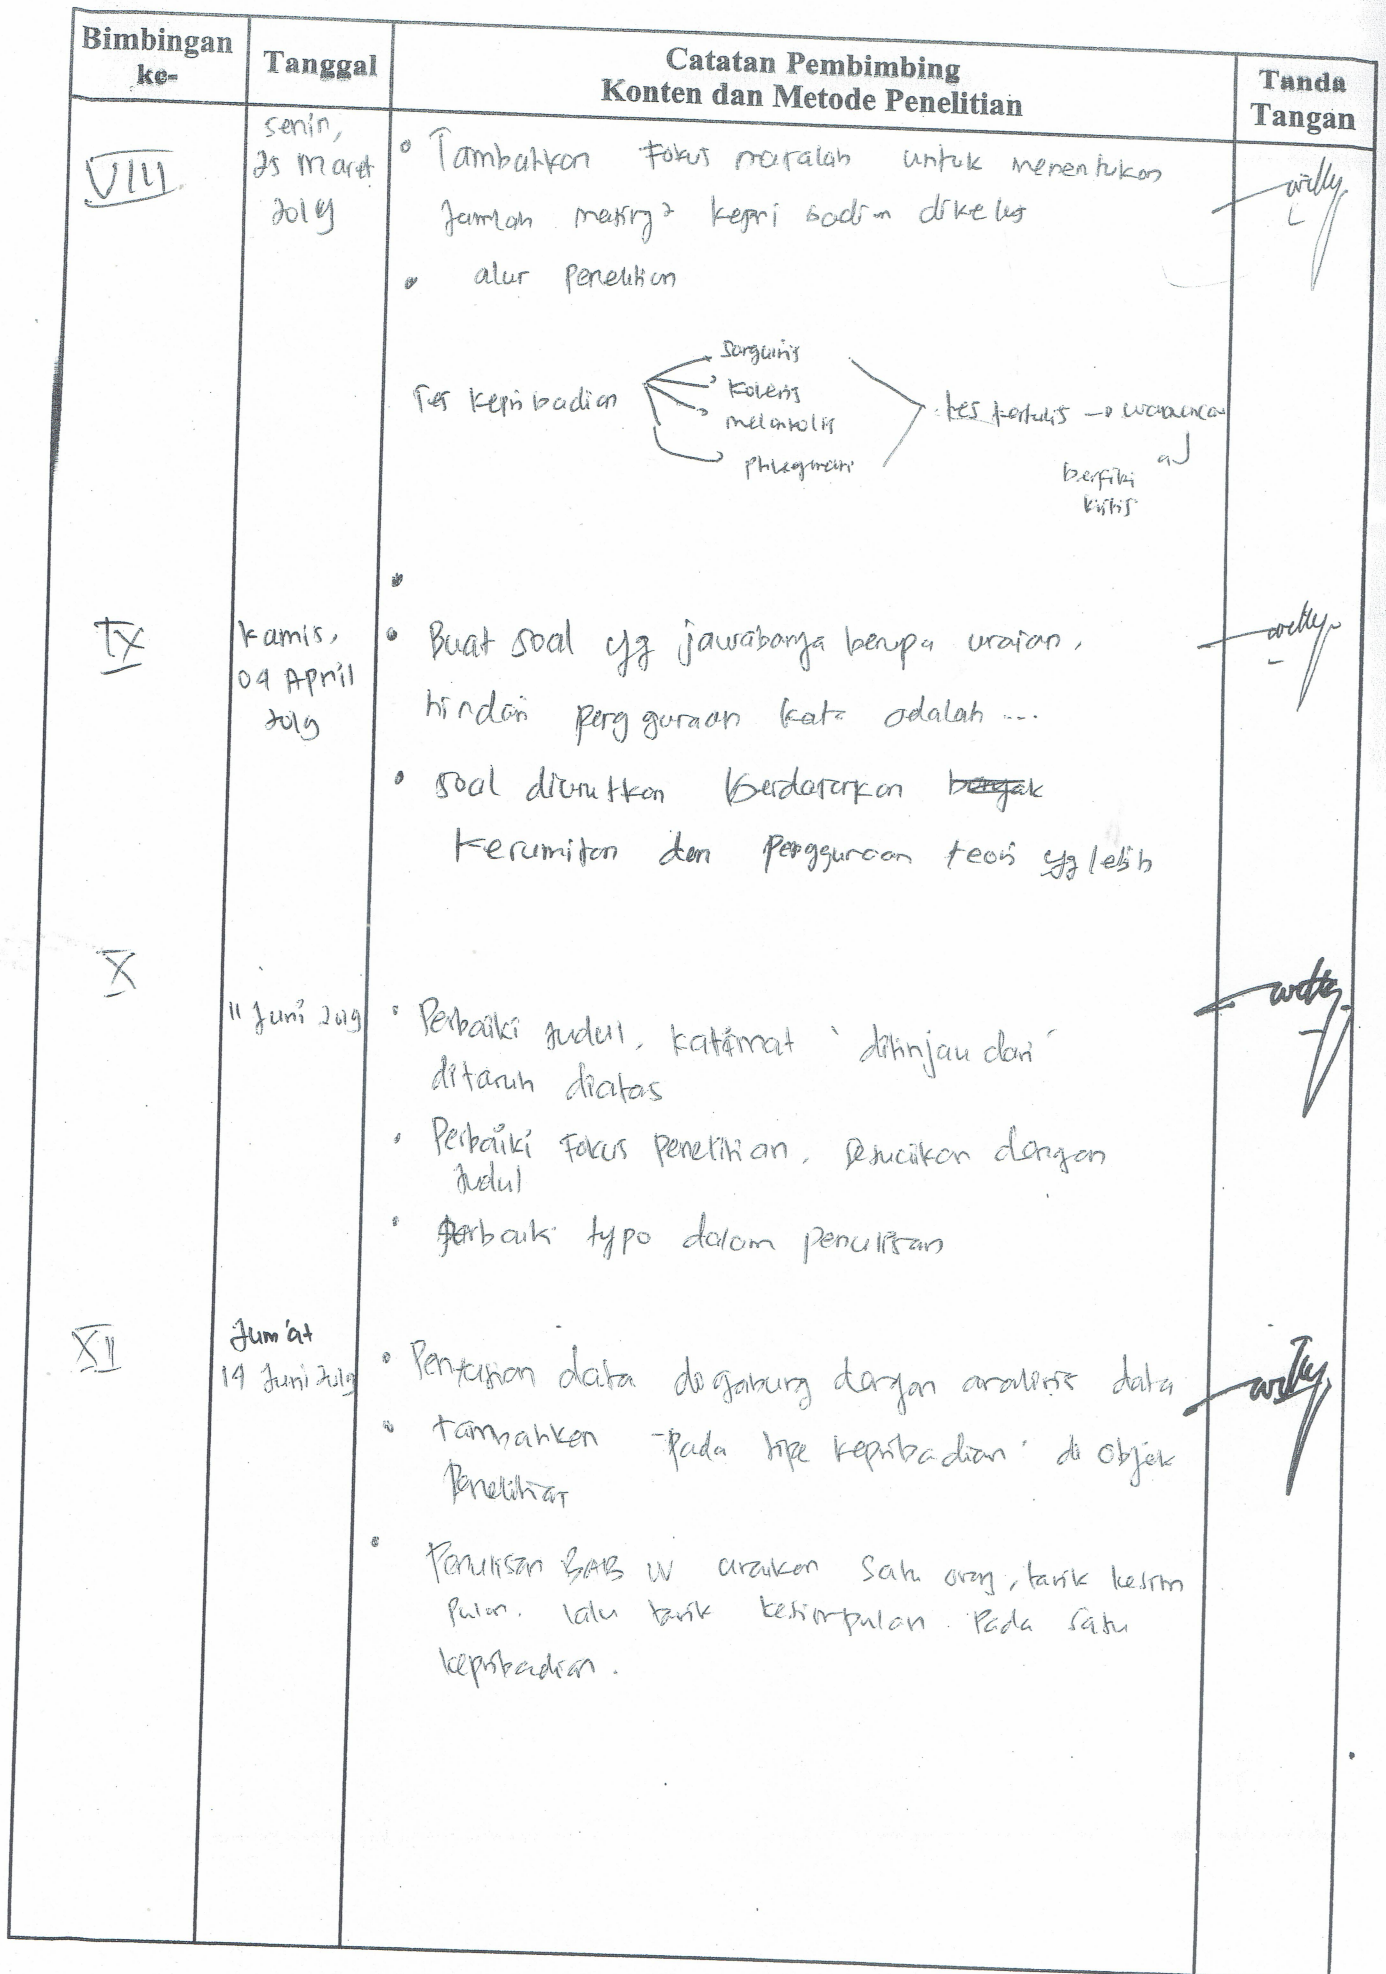 Bimbingan ke-
Tanggal
Catatan Pembimbing
Konten dan Metode Penelitian
Tanda Tangan
VIII
Senin,
25 Maret
2019
• Tambahkan Fokus masalah untuk menentukan
Jumlah masing2 kepribadian dikelas
• alur Penelitian
Tes Kepribadian
Sanguinis
Koleris
melankolis
Phlegmatis
tes tertulis → wawancara
berfikir
kritis
IX
Kamis,
04 April
2019
• Buat soal yg jawabanya berupa uraian,
hindari penggunaan kata adalah ...
• soal diurutkan berdasarkan banyak
Kerumitan dan Penggunaan teori yg lebih
X
11 Juni 2019
• Perbaiki Judul, kalimat ' ditinjau dari '
ditaruh diatas
• Perbaiki Fokus Penelitian, Sesuaikan dengan
Judul
• Perbaiki typo dalam penulisan
XI
Jum'at
14 Juni 2019
• Penyajian data digabung dengan analisis data
• tambahkan "Pada tipe kepribadian" di objek
Penelitian
• Penulisan BAB IV uraikan Satu orang, tarik kesim
Pulan. lalu tarik kesimpulan Pada satu
kepribadian.